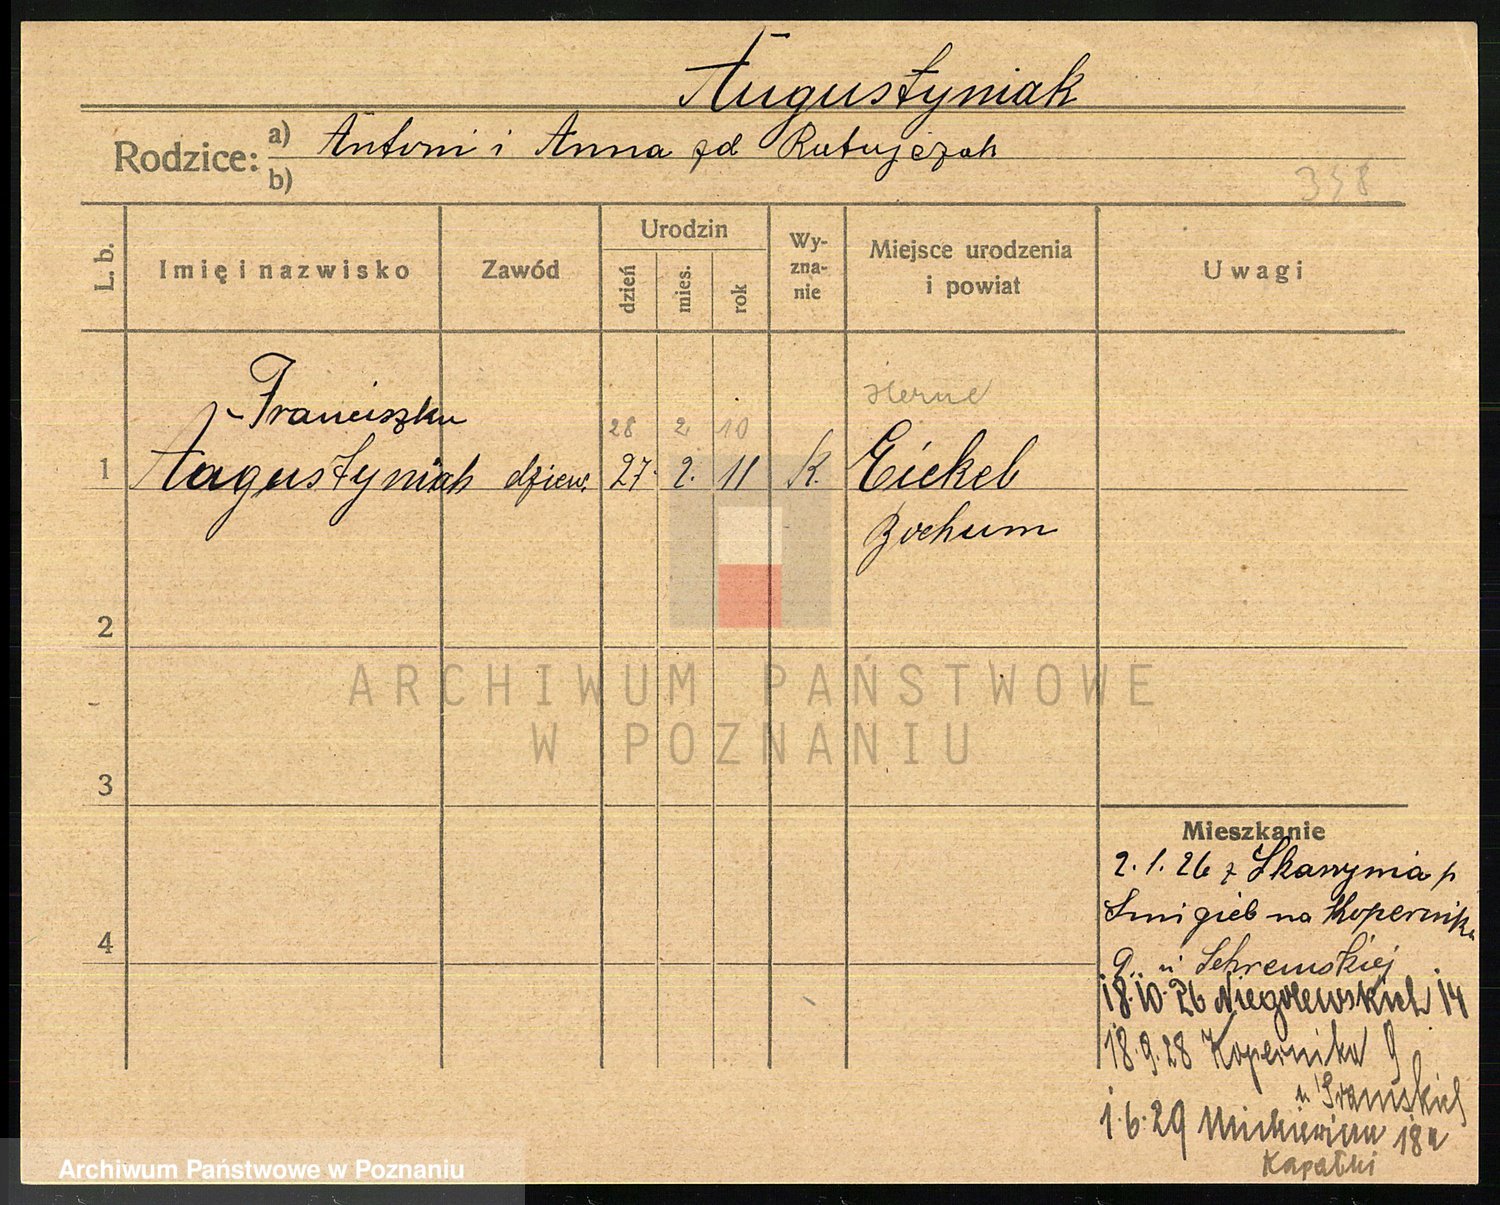 Augustyniak
Rodzice: a) Antoni i Anna zd Ratajczak
b)
358
L. b.
Imię i nazwisko
Zawód
Urodzin
dzień
mies.
rok
Wy-
zna-
nie
Miejsce urodzenia
i powiat
Uwagi
Franciszka
28 2 10
Herne
1 Augustyniak dziew. 27. 2. 11 K. Eickel
Bochum
2
ARCHIWUM PAŃSTWOWE
W POZNANIU
3
Mieszkanie
2.1.26 z p
Śmigiel na Kopernika
4
9 u
18.10.26 Niegolewskich 14
18.9.28 Kopernika 9
u
1.6.29 Mickiewicza 18a
Kapałki
Archiwum Państwowe w Poznaniu